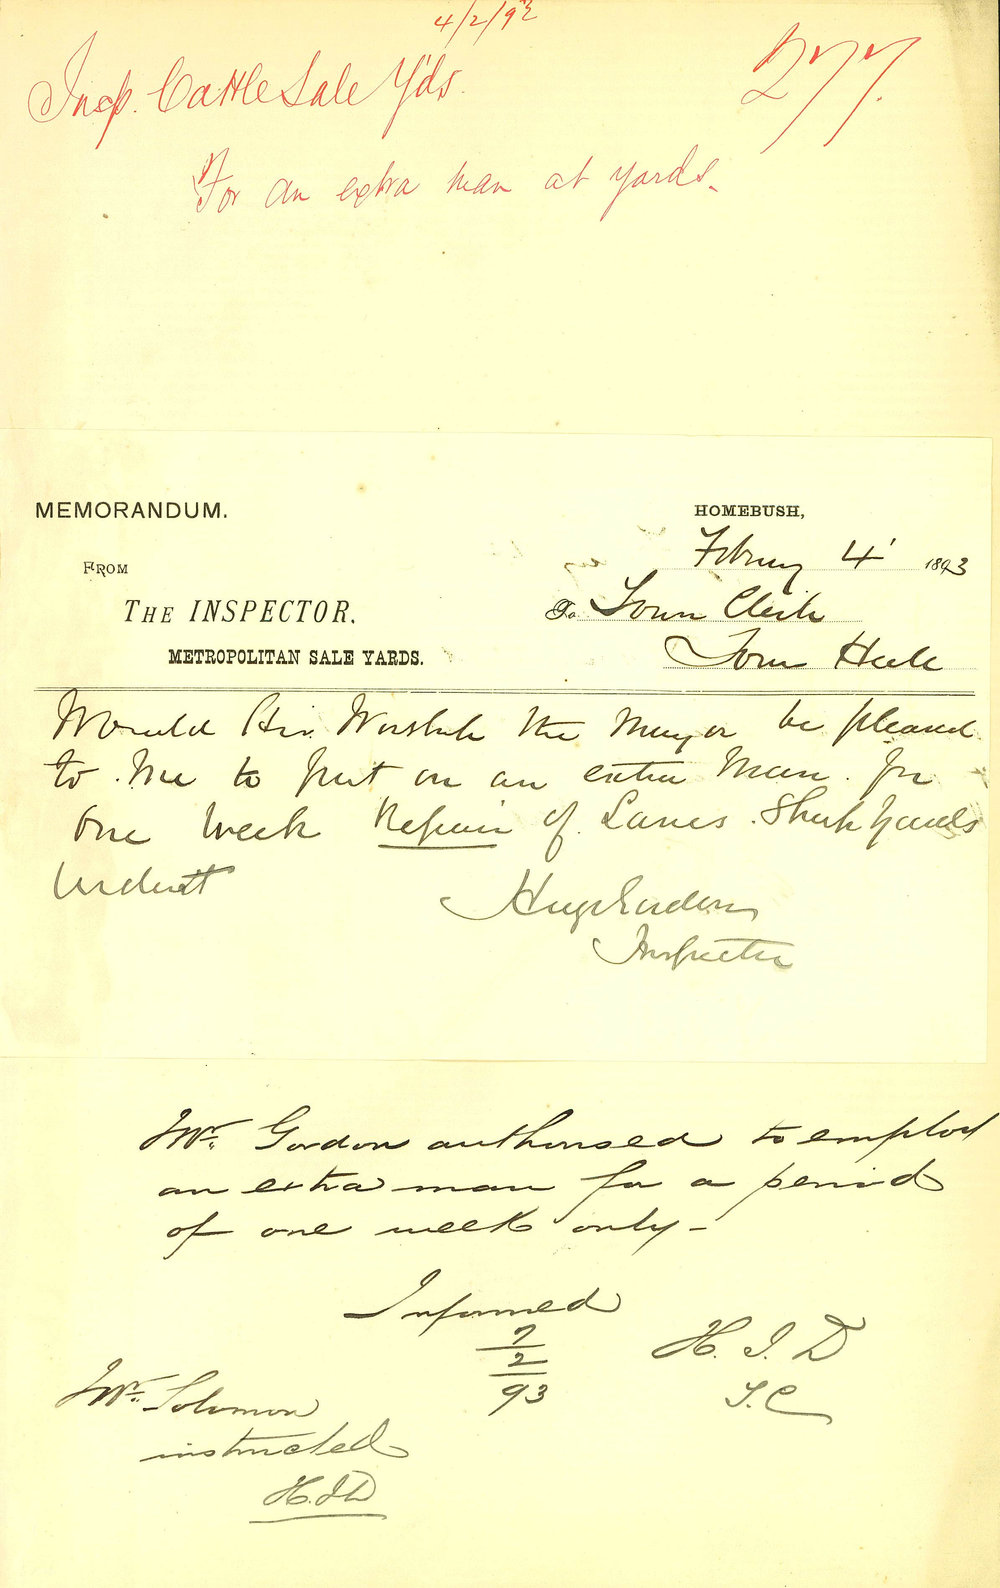 4/2/93
Insp. Cattle Sale Y'ds.
277.
For an extra man at yards.
MEMORANDUM.
HOMEBUSH,
February 4' 1893
FROM
THE INSPECTOR.
To Town Clerk
METROPOLITAN SALE YARDS.
Town Hall
Would His Worship the Mayor be pleased
to me to put on an extra Man for
one week Repair of Lanes. Sheep Yards
Hugh Gordon
Inspector
Mr. Gordon authorised to employ
an extra man for a period
of one week only -
Informed
7
2
93
H. J. D
T. C
Mr. Solomon
instructed
H. J. D